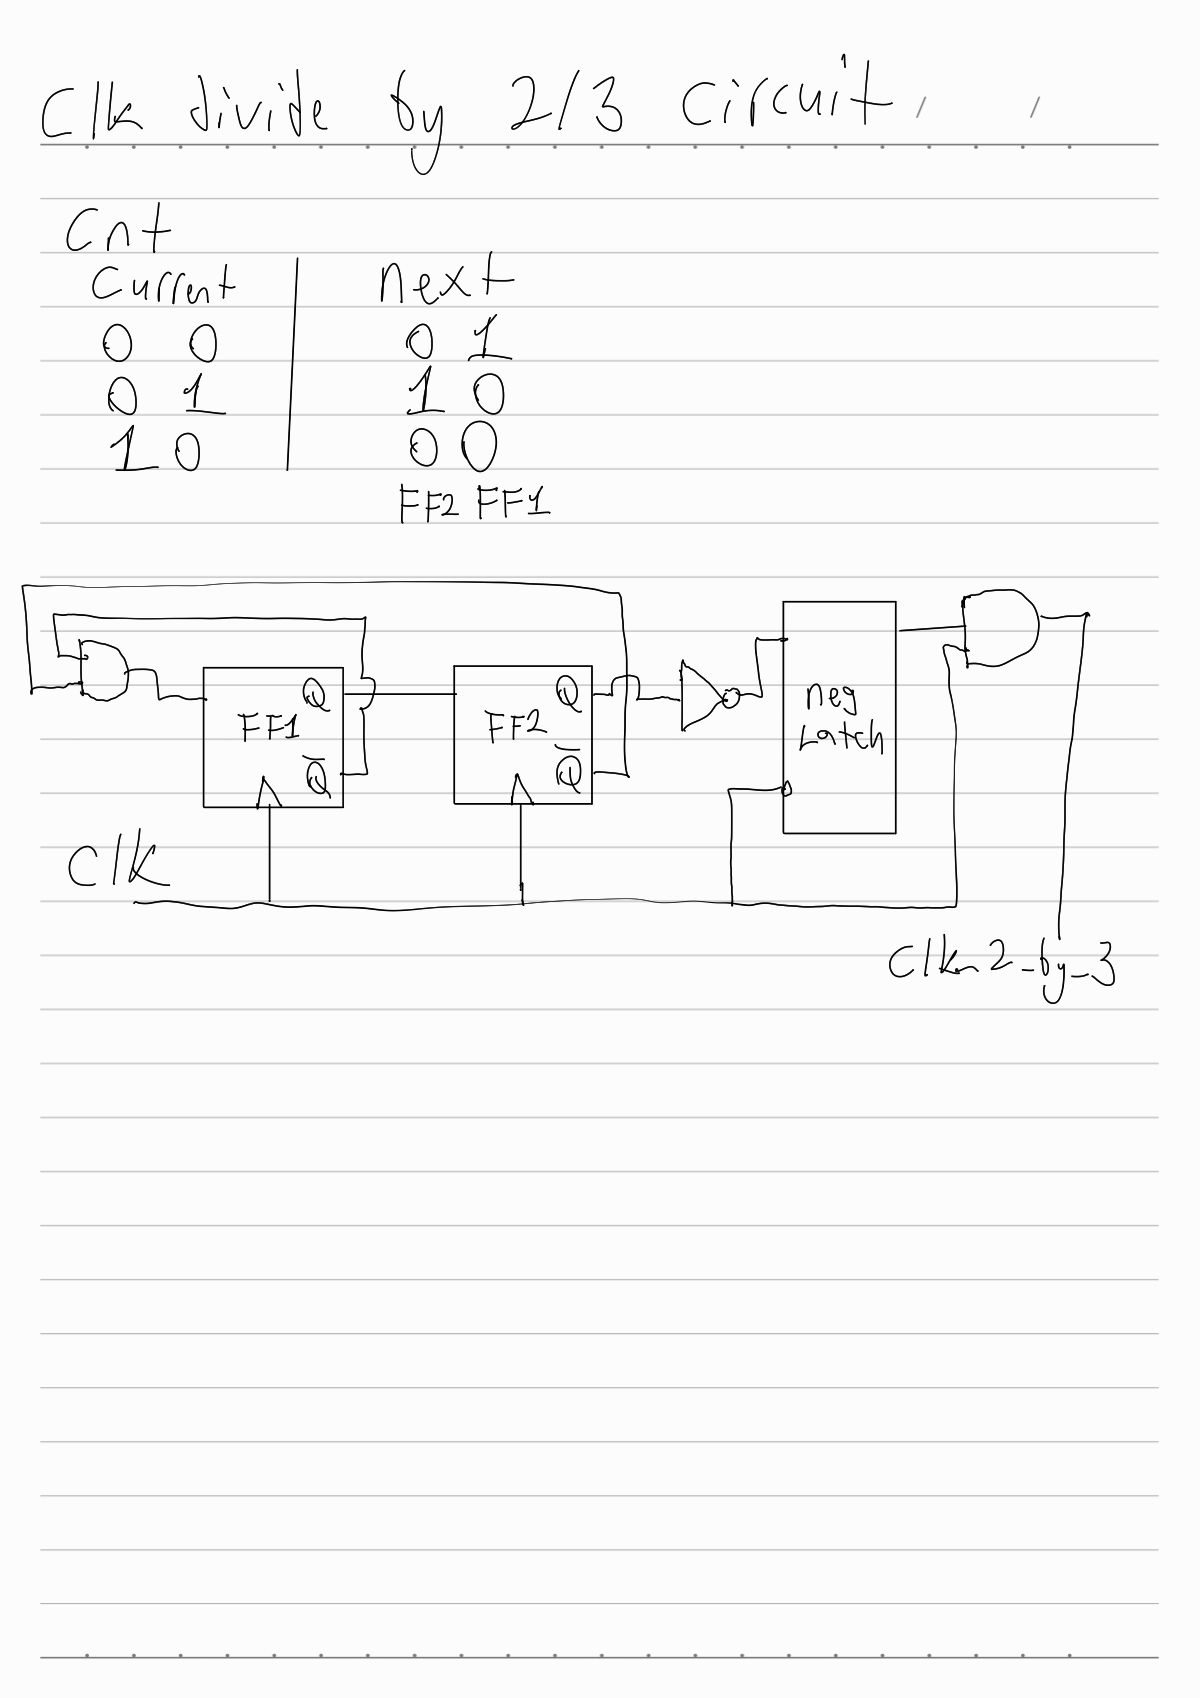 Clk divide by 2/3 circuit
Cnt
Current next
0 0 0 1
0 1 1 0
1 0 0 0
FF2 FF1
Q Q
FF1 FF2
Q̅ Q̅
neg
Latch
Clk
Clk_2_by_3